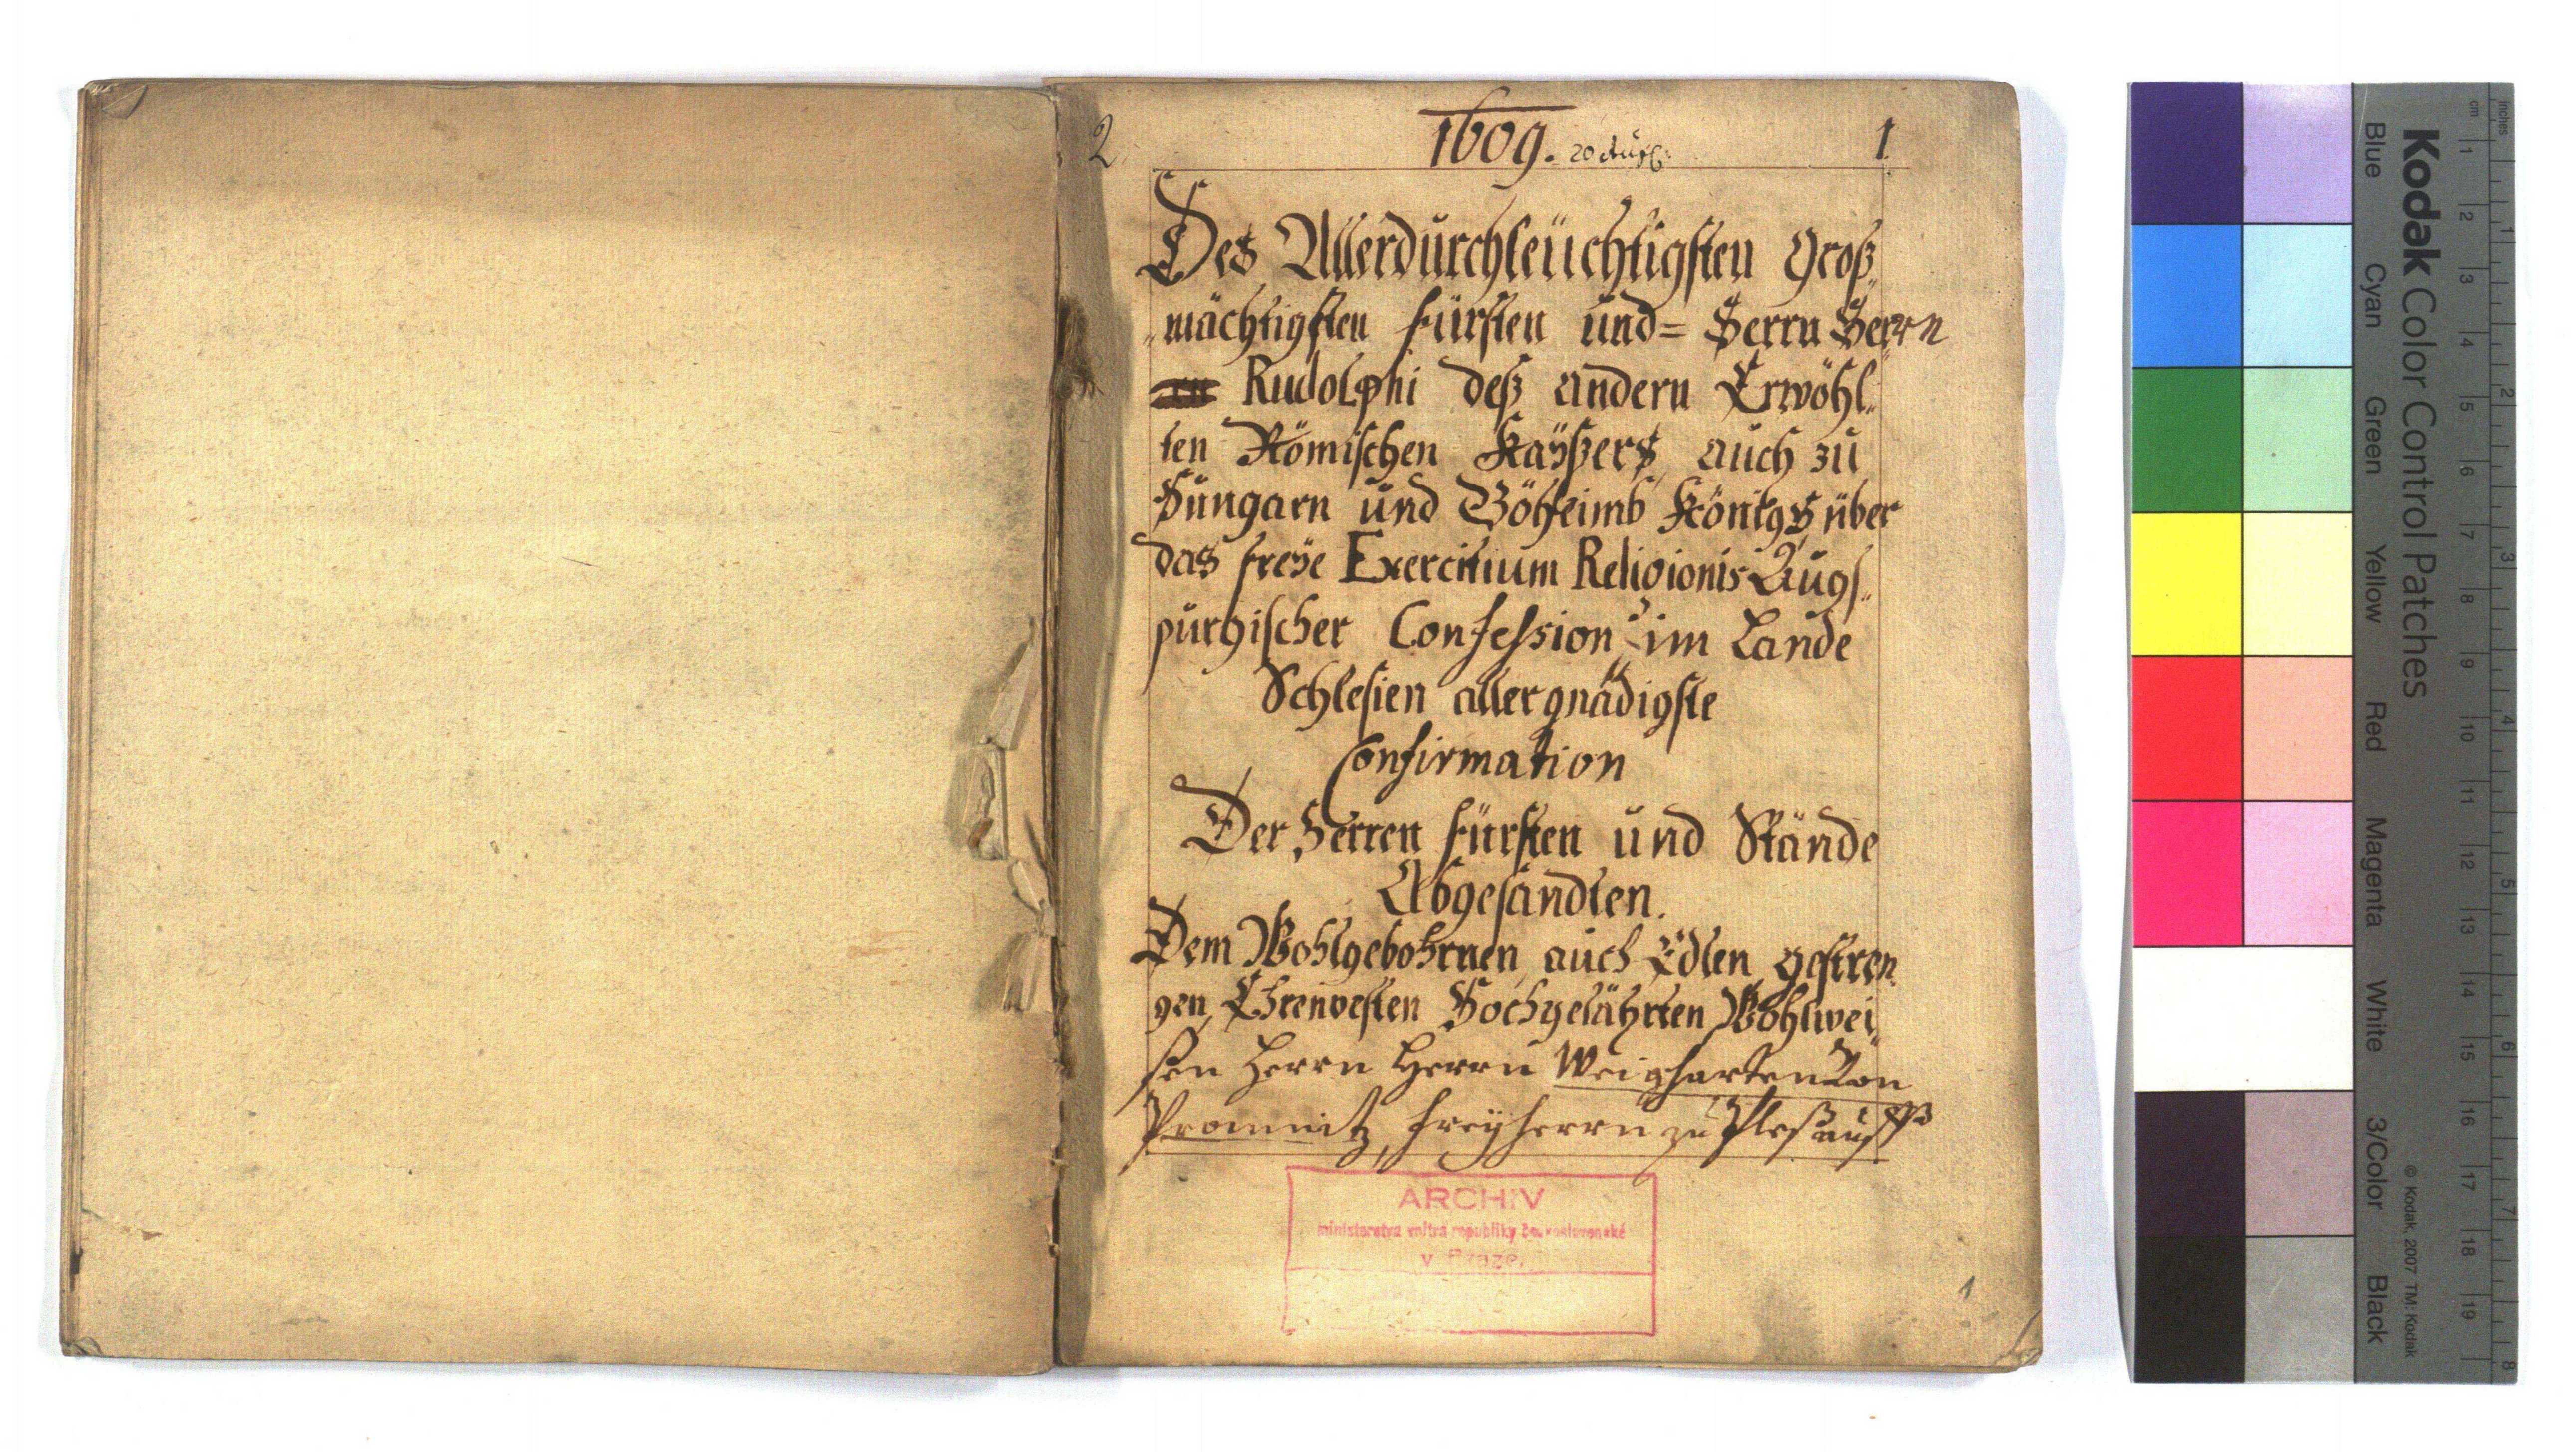 2
1609. 20 Aug:
1
Des Allerdurchleüchtigsten Groß„
„mächtigsten Fürsten und= Herrn Herrn
Rudolphi deß andern Erwöhl„
ten Römischen Kaÿßers, auch zu
Hungarn und Böheimb Königs über
das freÿe Exercitium Religionis Augs„
purgischer Confession im Lande
Schlesien allergnädigste
Confirmation
Der Herren Fürsten und Stände
Abgesandten.
Dem Wohlgebohrnen, auch Edlen, gestren„
gen, Ehrenvesten Hochgelährten, Wohlwei„
sen Herrn Herrn Weigharten Von
Promnitz, Freÿherrn zu Pleß auff
ARCHIV
ministerstva vnitra republiky československé
v Praze.
1
Kodak Color Control Patches
Blue Cyan Green Yellow Red Magenta White 3/Color Black
© Kodak, 2007 TM: Kodak
inches
cm
1 2 3 4 5 6 7 8 9 10 11 12 13 14 15 16 17 18 19
1 2 3 4 5 6 7 8